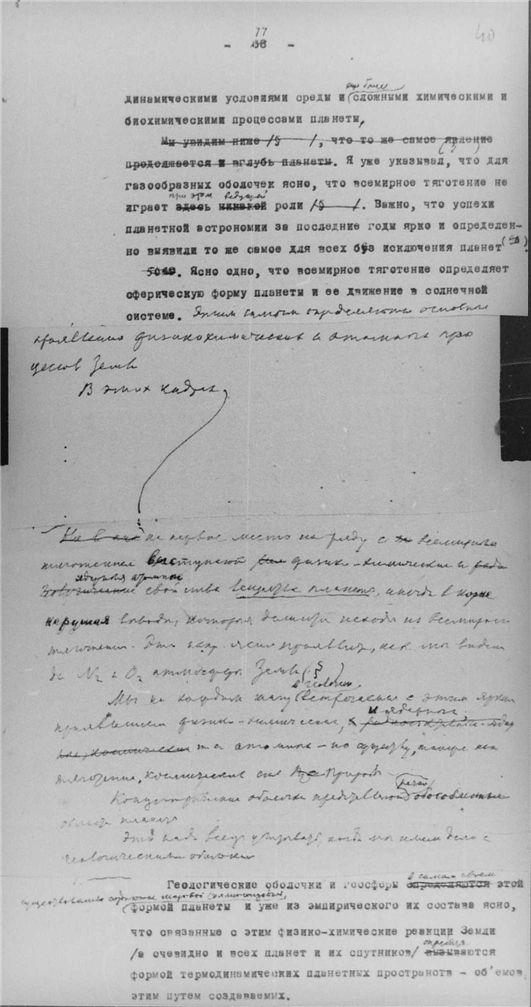 77
- 38 -
40
еще более
динамическими условиями среды и сложными химическими и
биохимическими процессами планеты,
Мы увидим ниже /§ /, что то же самое явление
продолжается и вглубь планеты. Я уже указывал, что для
газообразных оболочек ясно, что всемирное тяготение не
при этом ведущей
играет здесь никакой роли /§ /. Важно, что успехи
планетной астрономии за последние годы ярко и определен-
но выявили то же самое для всех без исключения планет
Ясно одно, что всемирное тяготение определяет
сферическую форму планеты и ее движение в солнечной
системе. Этим самым определяются основные
проявления физикохимических и атомных про
цессов Земли
В этих
на первое место на ряду с всемирным
тяготением выступают физико-химические и
ядерные
свойства вещества планеты, иногда в корне
нарушая выводы, которые делаются исходя из всемирного
тяготения. Это ярко проявляется, как мы видим
для N₂ и O₂ атмосферы Земли (§ )
Мы на каждом шагу встречаемся с этим ярким
проявлением физико-химических,
и атомных - по существу, таких как
тяготение, космических сил Природы
Концентрические оболочки
областей планеты
Это надо всегда учитывать, когда мы имеем дело с
геологическими оболочками
в самом своем
Геологические оболочки и геосферы определяются этой
существовании
формой планеты и уже из эмпирического их состава ясно,
что связанные с этим физико-химические реакции Земли
/а очевидно и всех планет и их спутников/ вызываются
формой термодинамических планетных пространств - об'емов,
этим путем создаваемых.